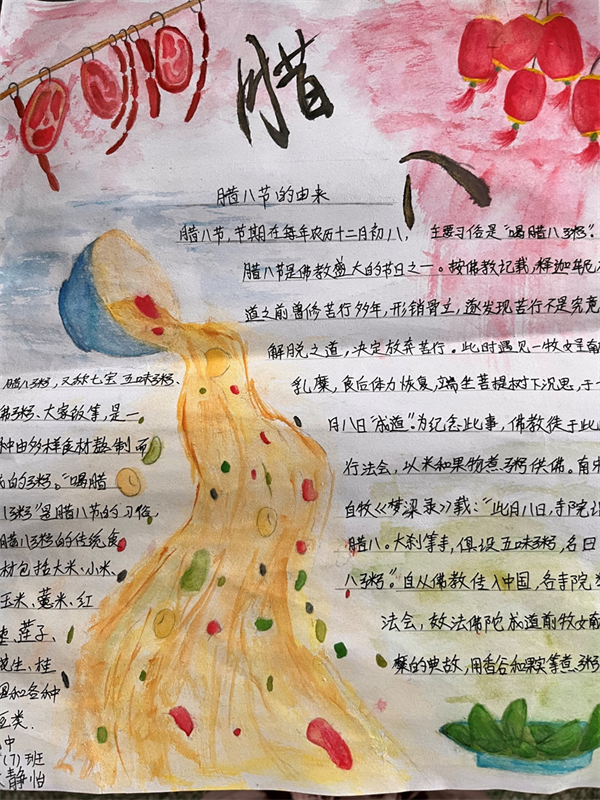 腊
八
腊八节的由来
腊八节,节期在每年农历十二月初八, 主要习俗是“喝腊八粥”.
腊八节是佛教盛大的节日之一。按佛教记载,释迦牟尼
道之前曾修苦行多年,形销骨立,遂发现苦行不是究竟
解脱之道,决定放弃苦行。此时遇见一牧女呈
乳糜,食后体力恢复,端坐菩提树下沉思,于十
月八日“成道”.为纪念此事,佛教徒于此
行法会,以米和果物煮粥供佛。南宋
自牧《梦梁录》载:“此月八日,寺院
腊八。大刹等寺,俱设五味粥,名曰
八粥”.自从佛教传入中国,各寺院
法会,效法佛陀成道前牧女
糜的典故,用香谷和果实等煮粥
腊八粥,又称七宝五味粥、
佛粥、大家饭等,是一
种由多样食材熬制而
成的粥。“喝腊
八粥”是腊八节的习俗,
腊八粥的传统食
材包括大米、小米、
玉米、薏米、红
枣、莲子、
花生、桂
圆和各种
豆类.
中
(7)班
静怡